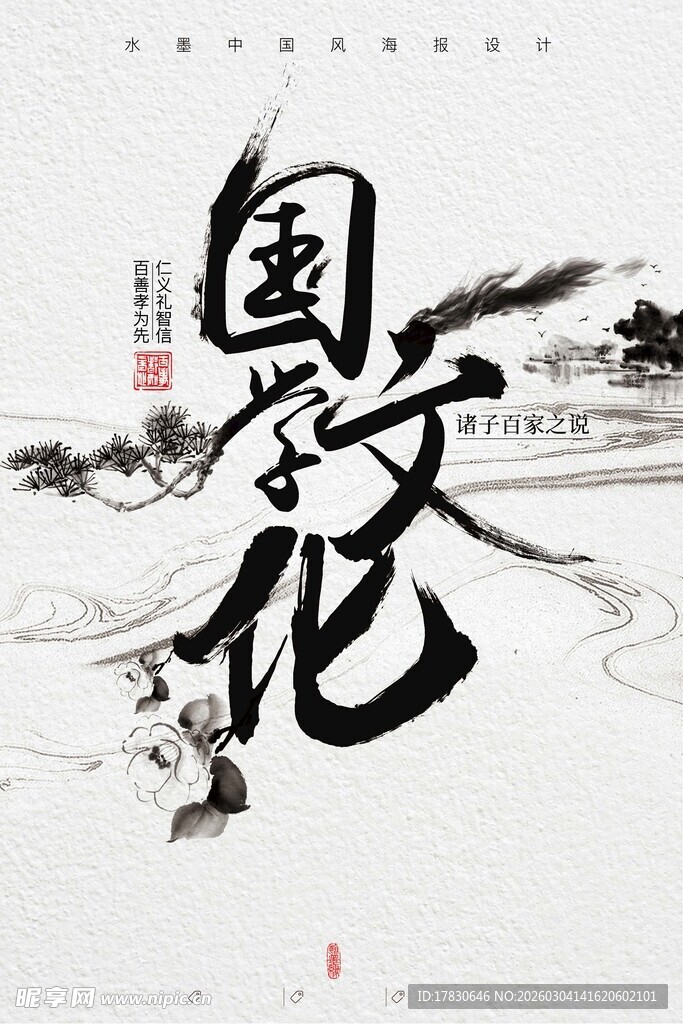 水墨中国风海报设计
国学文化
仁义礼智信
百善孝为先
诸子百家之说
昵享网 www.nipic.cn
ID:17830646 NO:20260304141620602101